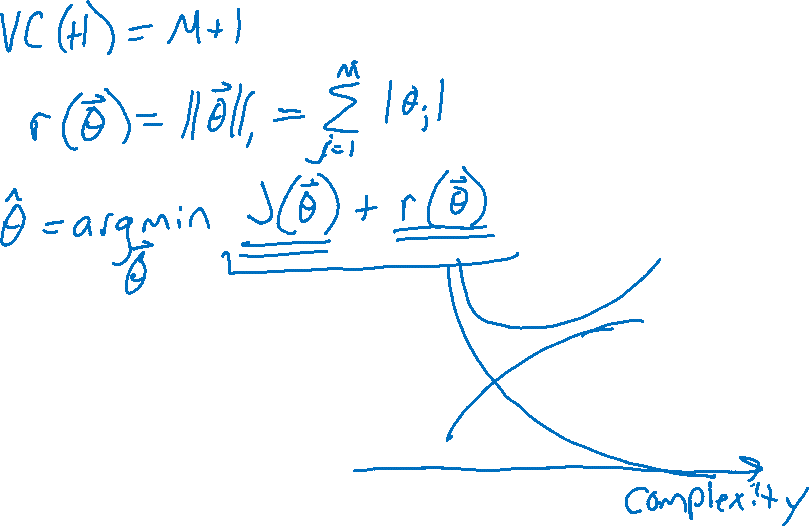 VC(H) = M+1
r(θ⃗) = ||θ⃗||₁ = ∑_{j=1}^{M} |θ_j|
θ̂ = argmin_{θ⃗} J(θ⃗) + r(θ⃗)
complexity